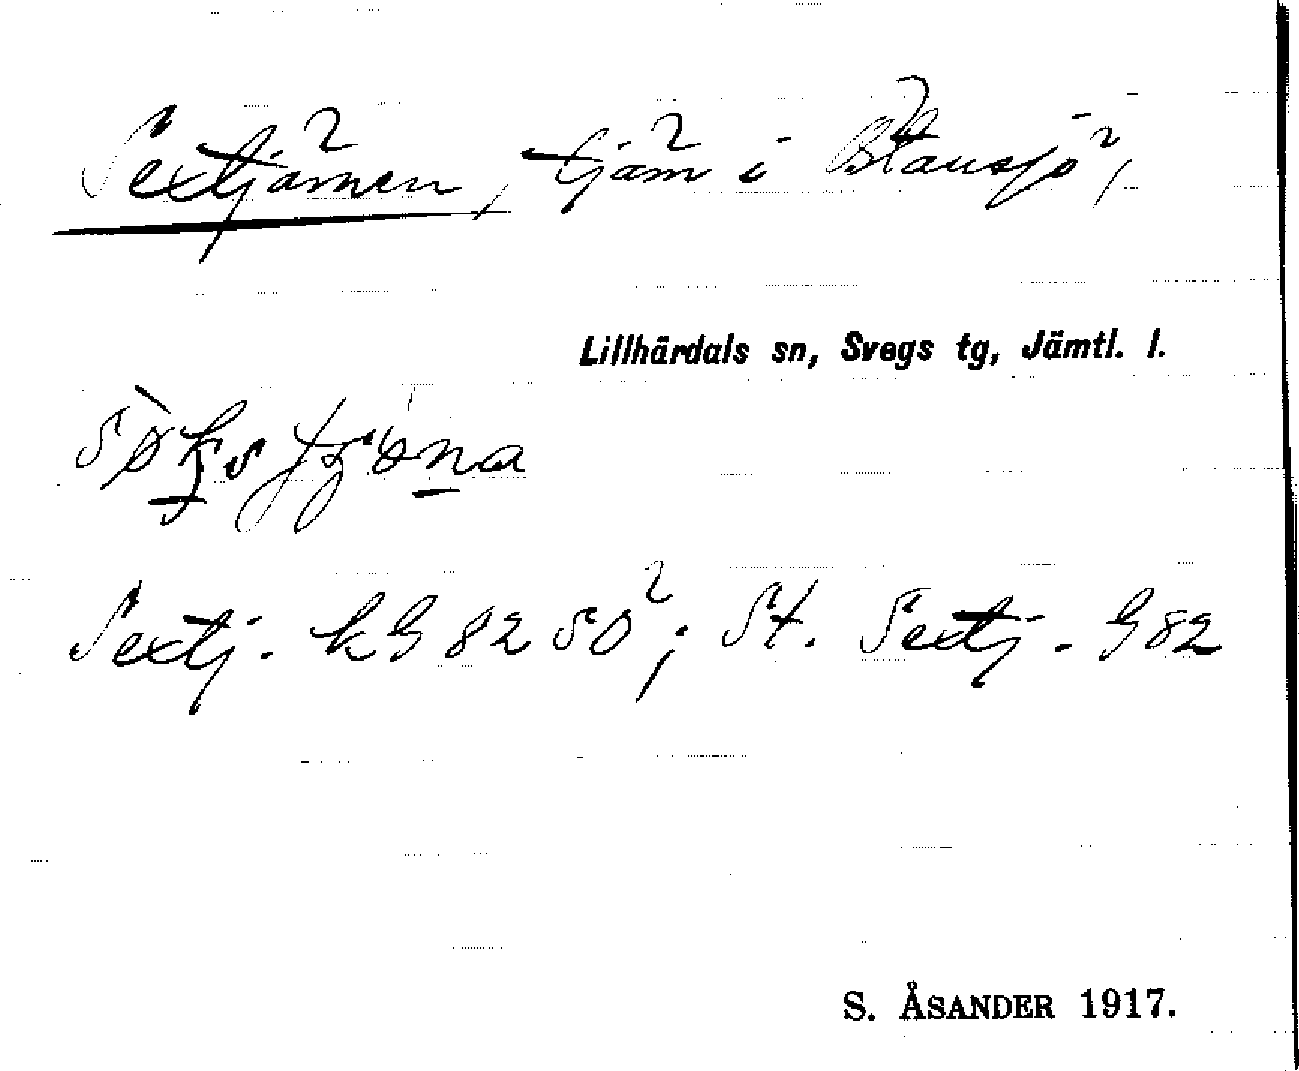 Sextjärnen, tjärn i Blåusjö,
Lillhärdals sn, Svegs tg, Jämtl. l.
Sextj. kG 82 SO; St. Sextj. G 82
S. ÅSANDER 1917.